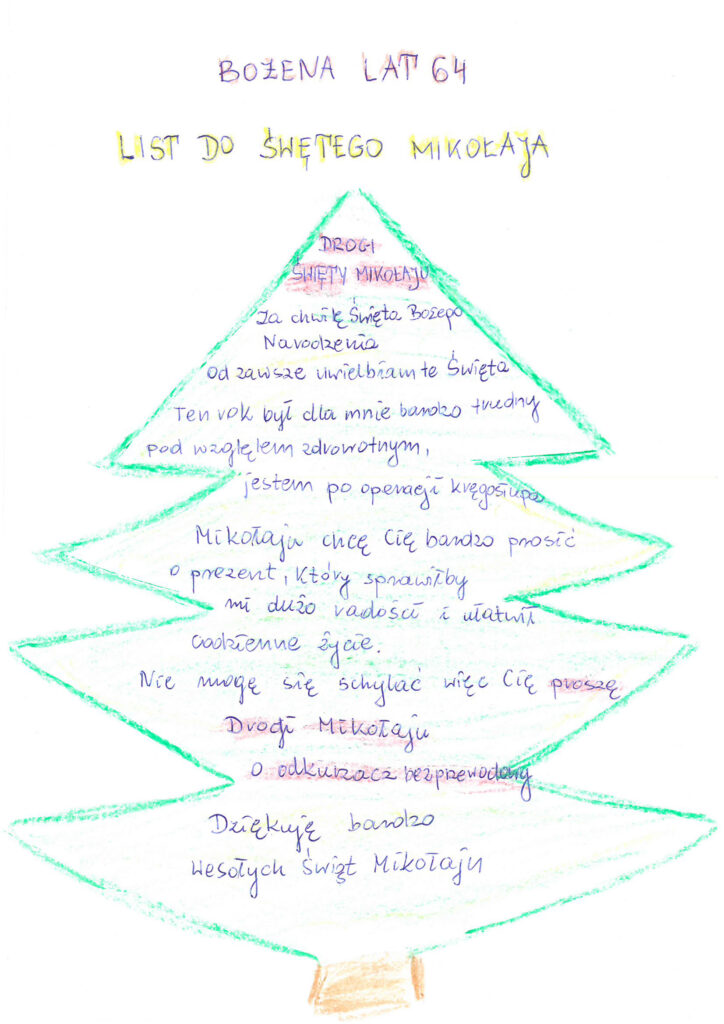 BOŻENA LAT 64
LIST DO ŚWĘTEGO MIKOŁAJA
DROGI
ŚWIĘTY MIKOŁAJU
Za chwilę Święta Bożego
Narodzenia
od zawsze uwielbiam te Święta
Ten rok był dla mnie bardzo trudny
pod względem zdrowotnym,
jestem po operacji kręgosłupa
Mikołaju chcę Cię bardzo prosić
o prezent, który sprawiłby
mi dużo radości i ułatwił
codzienne życie.
Nie mogę się schylać więc Cię proszę
Drogi Mikołaju
o odkurzacz bezprzewodowy
Dziękuję bardzo
Wesołych Świąt Mikołaju